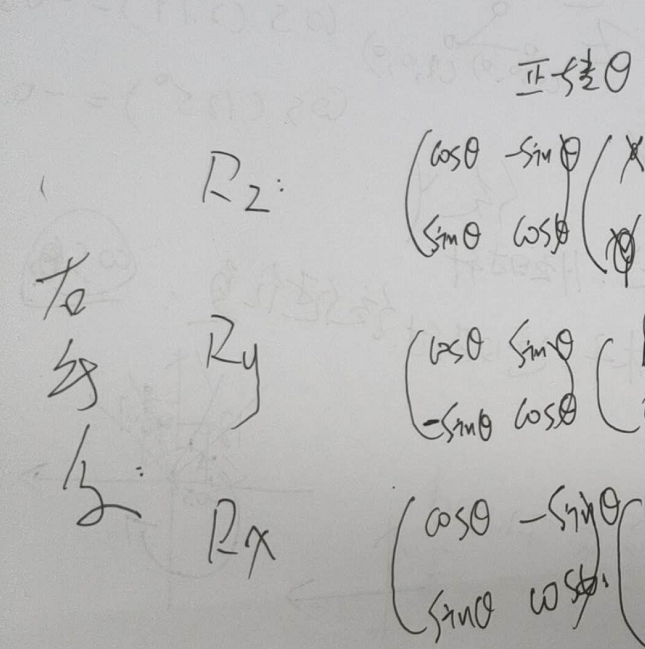 正转θ
Rz: (cosθ -sinθ
sinθ cosθ)
Ry (cosθ sinθ
-sinθ cosθ)
Rx (cosθ -sinθ
sinθ cosθ)
右
系